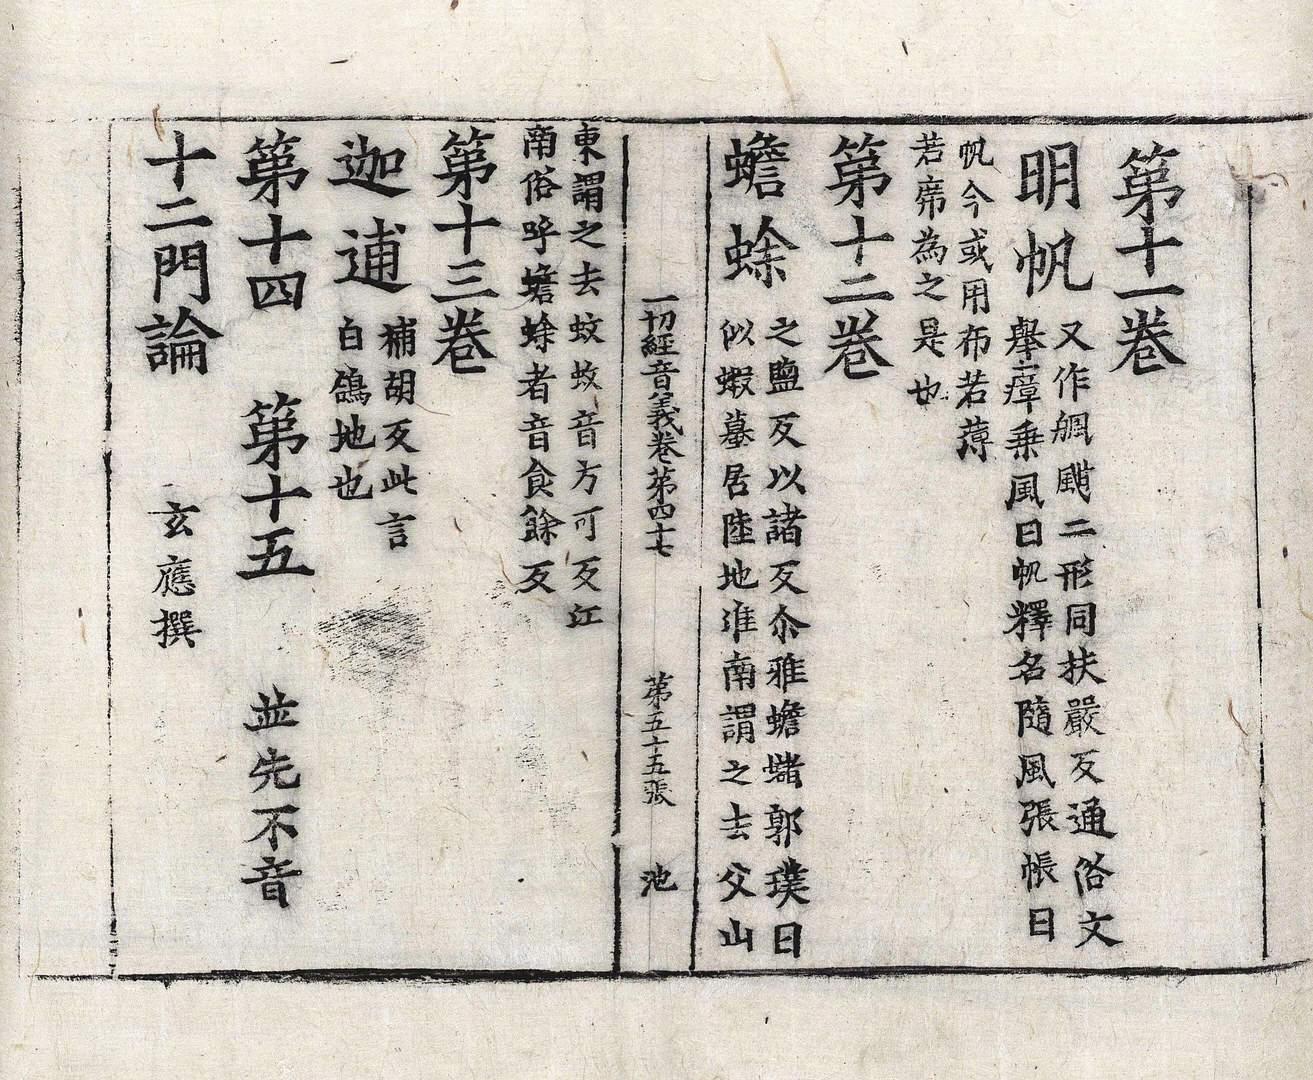 第十一卷
明帆
又作䑺颿二形同扶嚴反通俗文
舉㡣乘風曰帆釋名隨風張幔曰
帆今或用布若薄
若席為之是也
第十二卷
蟾蜍
之鹽反以諸反尒雅蟾蠩郭璞曰
似蝦蟇居陸地淮南謂之去父山
一切經音義卷第四十七
第五十五張
池
東謂之去蚊蚥音方可反江
南俗呼蟾蜍者音食餘反
第十三卷
迦逋
補胡反此言
白鴿地也
第十四
第十五
並先不音
十二門論
玄應撰